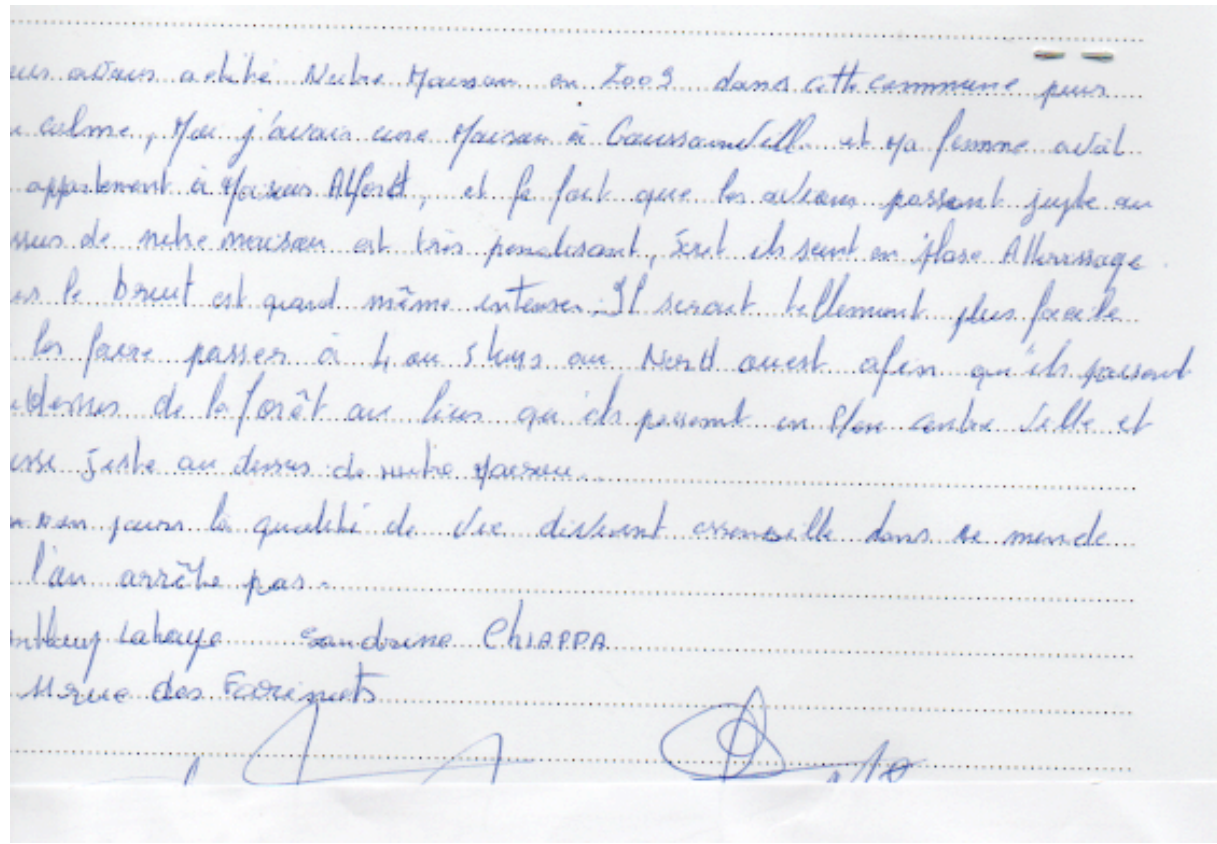 us avons acheté Notre Maison en 2009 dans cette commune pour
calme, Moi j'avais une Maison à Goussainville et Ma femme avait
appartement à Maisons Alfort, et le fait que les avions passent juste au
ssus de notre maison est très penalisant, Soit ils sont en phase Atterrissage
le bruit est quand même intense. Il serait tellement plus facile
les faire passer à 4 ou 5 kms au Nord ouest afin qu'ils passent
dessus de la forêt au lieu qu'ils passent en plein centre Ville et
juste au dessus de notre Maison.
nos jours la qualité de Vie devient essentielle dans ce monde
l'on arrête pas.
nthony Lahaye Sandrine CHIAPPA
11 rue des